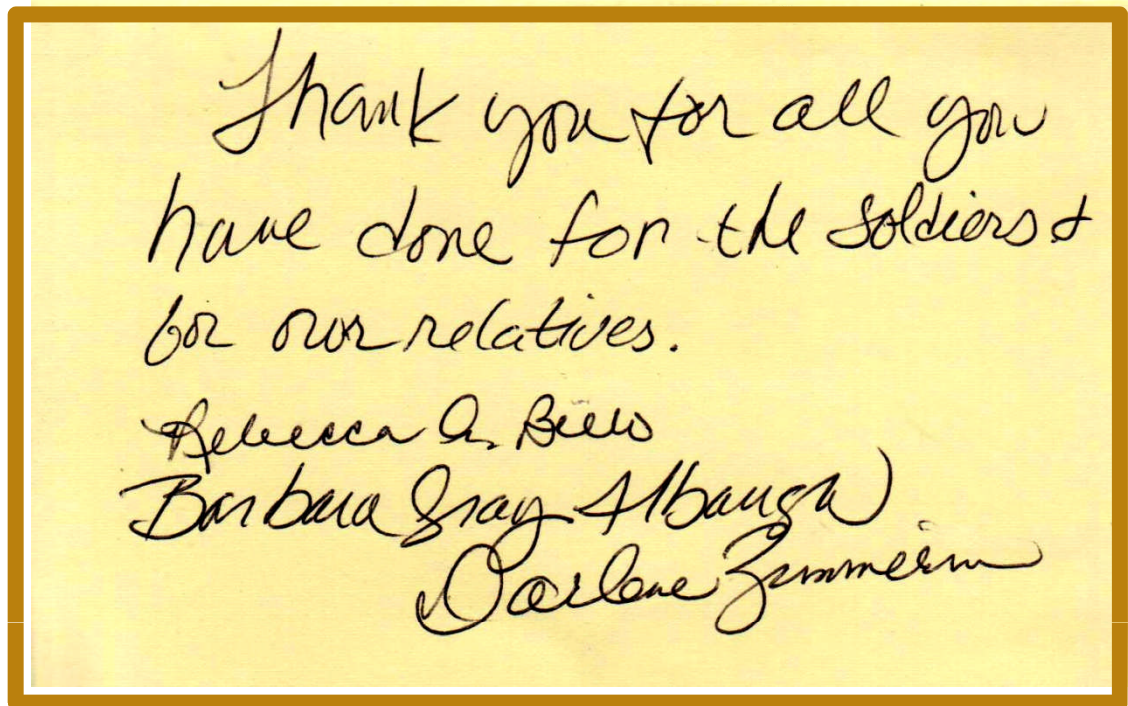 Thank you for all you
have done for the soldiers &
for our relatives.
Rebecca A.
Barbara Gray Albaugh
Darlene Zimmerm